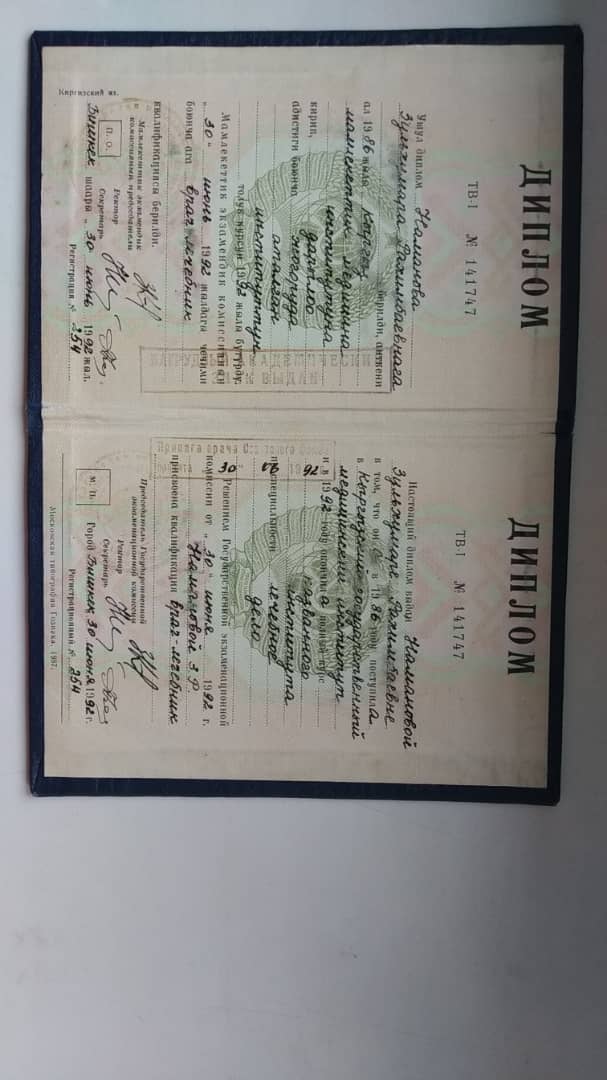 ДИПЛОМ
ТВ-I № 141747
Ушул диплом Наманова
Зульхумара Рахимбаевнага
берилди, анткени
ал 1986 жылы Кыргыз
мамлекеттик медицина
институтуна
кирип, дарылоо
адистиги боюнча жогоруда
аталган
институттун
толук курсун 1992 жылы бүтүрдү.
Мамлекеттик экзамендик комиссиянын
„30“ июнь 1992 жылдагы чечими
боюнча ага врач-лечебник
квалификациясы берилди.
Мамлекеттик экзамендик
комиссиянын председатели
Ректор
П. О.
Секретарь
Бишкек шаары „30“ июнь 1992 жыл.
Регистрация № 354
Киргизский яз.
ДИПЛОМ
ТВ-I № 141747
Настоящий диплом выдан Намановой
Зульхумаре Рахимбаевне
в том, что он а в 1986 году поступила
в Кыргызский государственный
медицинский институт
и в 1992 году окончила полный курс
названного
института
по специальности лечебное
дело
Решением Государственной экзаменационной
комиссии от „30“ июня 1992 г.
Намановой З.Р.
присвоена квалификация врач-лечебник
Председатель Государственной
экзаменационной комиссии
Ректор
М. П.
Секретарь
Город Бишкек 30 июня 1992 г.
Регистрационный № 354
Московская типография Гознака.